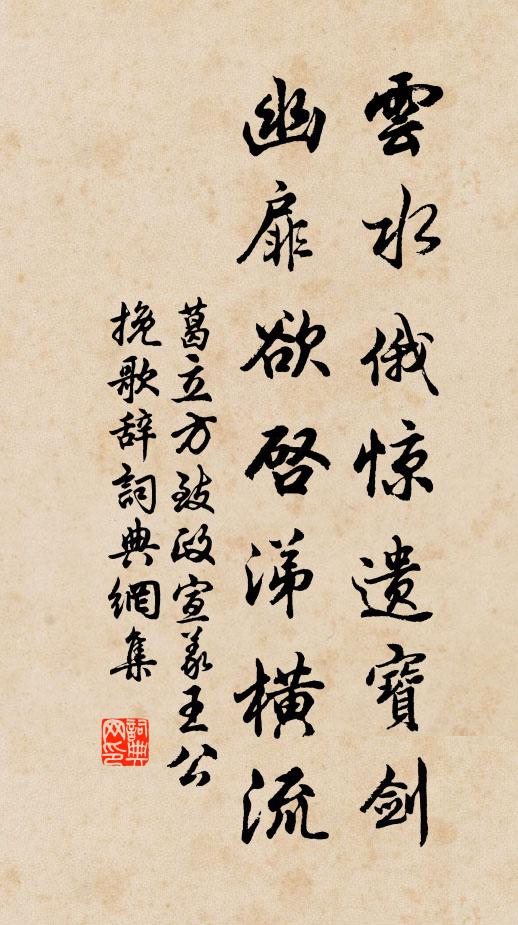 雲水俄惊遗寶剑
幽扉欲啓涕橫流
葛立方致政宣义王公
挽歌辞詞典網集
詞典网印